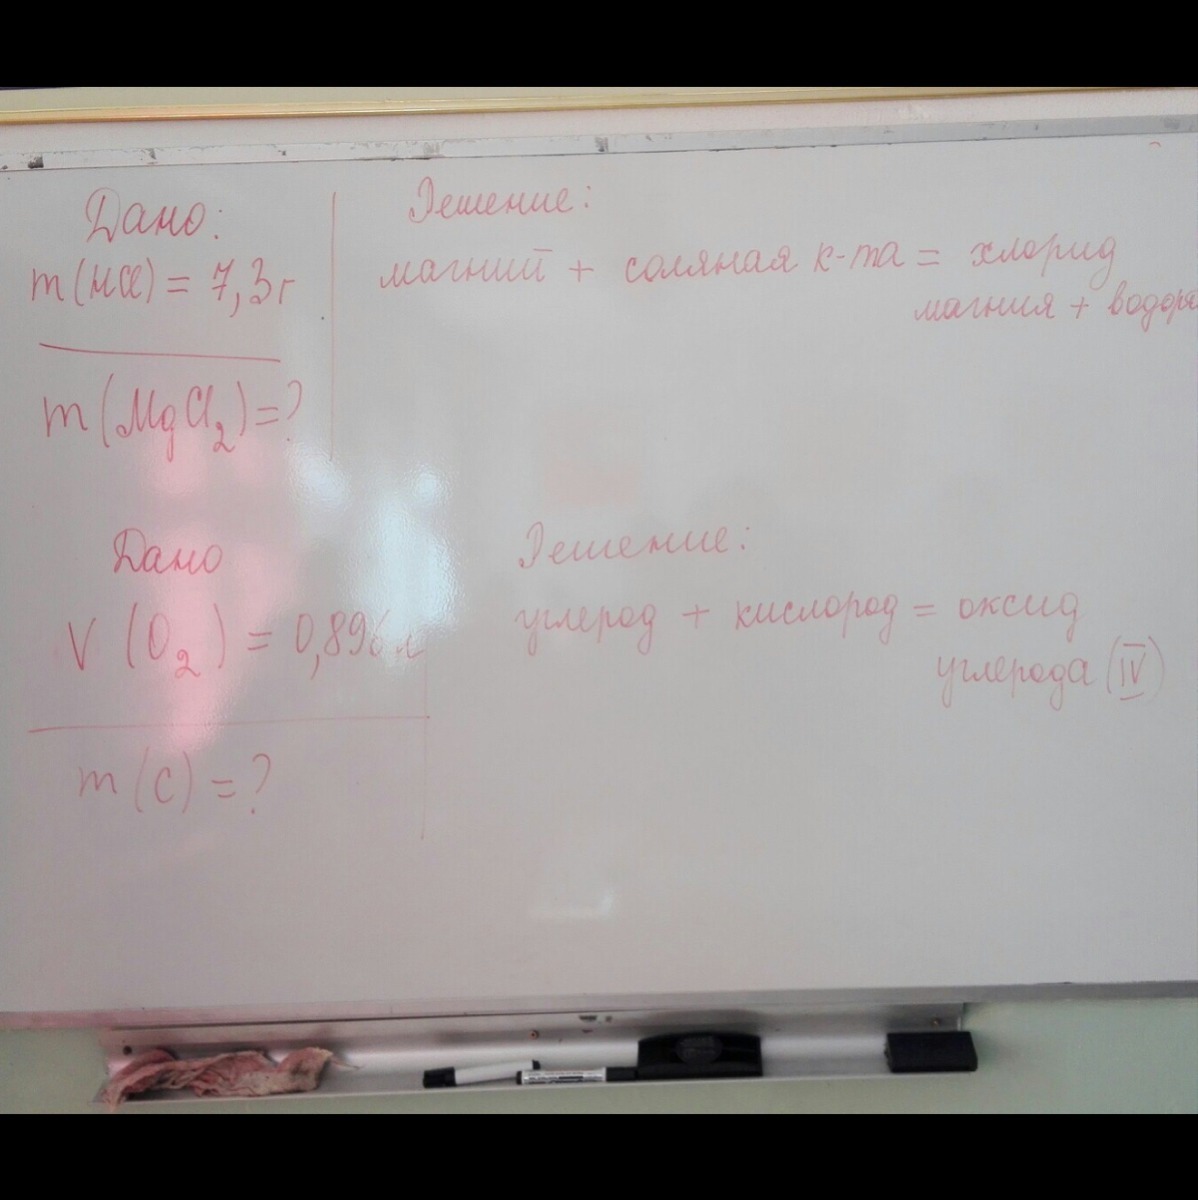 Дано:
m(HCl) = 7,3 г
m(MgCl₂)=?
Решение:
магний + соляная к-та = хлорид
магния + водоро
Дано
V (O₂) = 0,896 л
m(C) = ?
Решение:
углерод + кислород = оксид
углерода (IV)